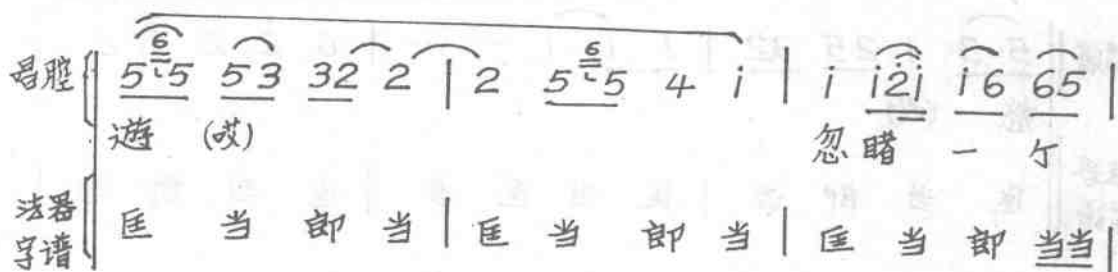 唱腔 5 5 5 3 32 2 | 2 5 5 4 i | i i2i i6 65 |
遊 (哎) 忽 睹 一 亇
法器字谱 匡 当 郎 当 | 匡 当 郎 当 | 匡 当 郎 当当 |